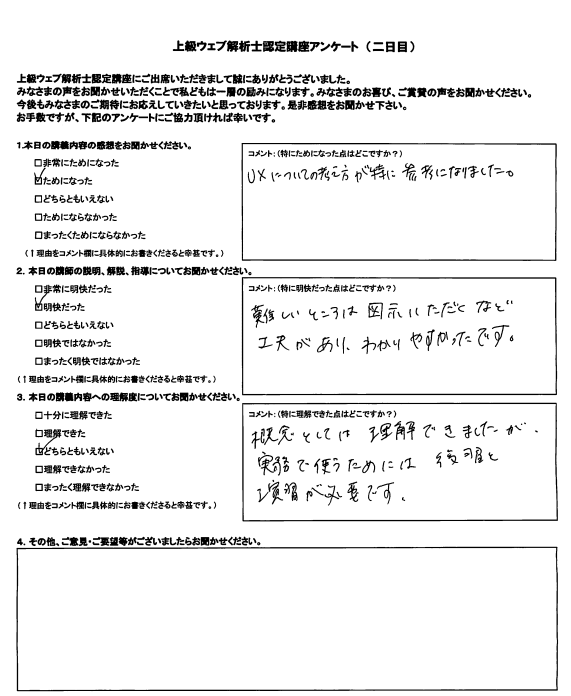 上級ウェブ解析士認定講座アンケート（二日目）
上級ウェブ解析士認定講座にご出席いただきまして誠にありがとうございました。
みなさまの声をお聞かせいただくことで私どもは一層の励みになります。みなさまのお喜び、ご賞賛の声をお聞かせください。
今後もみなさまのご期待にお応えしていきたいと思っております。是非感想をお聞かせ下さい。
お手数ですが、下記のアンケートにご協力頂ければ幸いです。
1.本日の講義内容の感想をお聞かせください。
□非常にためになった
☑ためになった
□どちらともいえない
□ためにならなかった
□まったくためにならなかった
（↑理由をコメント欄に具体的にお書きくださると幸甚です。）
コメント：（特にためになった点はどこですか？）
UXについての考え方が特に参考になりました。
2. 本日の講師の説明、解説、指導についてお聞かせください。
□非常に明快だった
☑明快だった
□どちらともいえない
□明快ではなかった
□まったく明快ではなかった
（↑理由をコメント欄に具体的にお書きくださると幸甚です。）
コメント：（特に明快だった点はどこですか？）
難しいところは図示いただくなど
工夫があり、わかりやすかったです。
3. 本日の講義内容への理解度についてお聞かせください。
□十分に理解できた
□理解できた
☑どちらともいえない
□理解できなかった
□まったく理解できなかった
（↑理由をコメント欄に具体的にお書きくださると幸甚です。）
コメント：（特に理解できた点はどこですか？）
概念としては理解できましたが、
実務で使うためには復習と
演習が必要です。
4. その他、ご意見・ご要望等がございましたらお聞かせください。